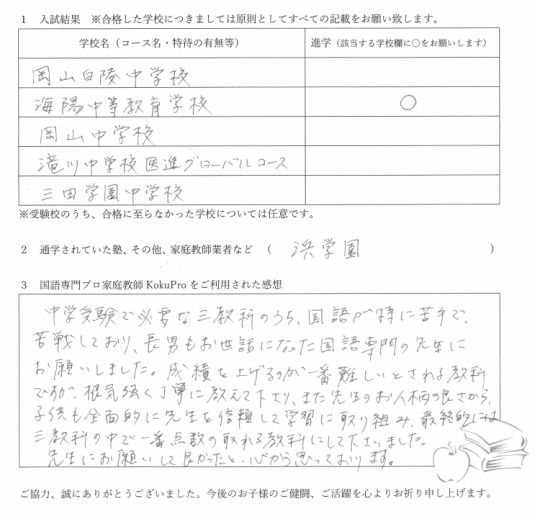 1 入試結果 ※合格した学校につきましては原則としてすべての記載をお願い致します。
学校名（コース名・特待の有無等） 進学（該当する学校欄に○をお願いします）
岡山白陵中学校
海陽中等教育学校 ○
岡山中学校
滝川中学校医進グローバルコース
三田学園中学校
※受験校のうち、合格に至らなかった学校については任意です。
2 通学されていた塾、その他、家庭教師業者など （ 浜学園 ）
3 国語専門プロ家庭教師 KokuPro をご利用された感想
中学受験で必要な三教科のうち、国語が特に苦手で、
苦戦しており、長男もお世話になった国語専門の先生に
お願いしました。成績を上げるのが一番難しいとされる教科
ですが、根気強く丁寧に教えて下さり、また先生のお人柄の良さから、
子供も全面的に先生を信頼して学習に取り組み、最終的には
三教科の中で一番点数の取れる教科にして下さいました。
先生にお願いして良かったと、心から思っております。
ご協力、誠にありがとうございました。今後のお子様のご健闘、ご活躍を心よりお祈り申し上げます。